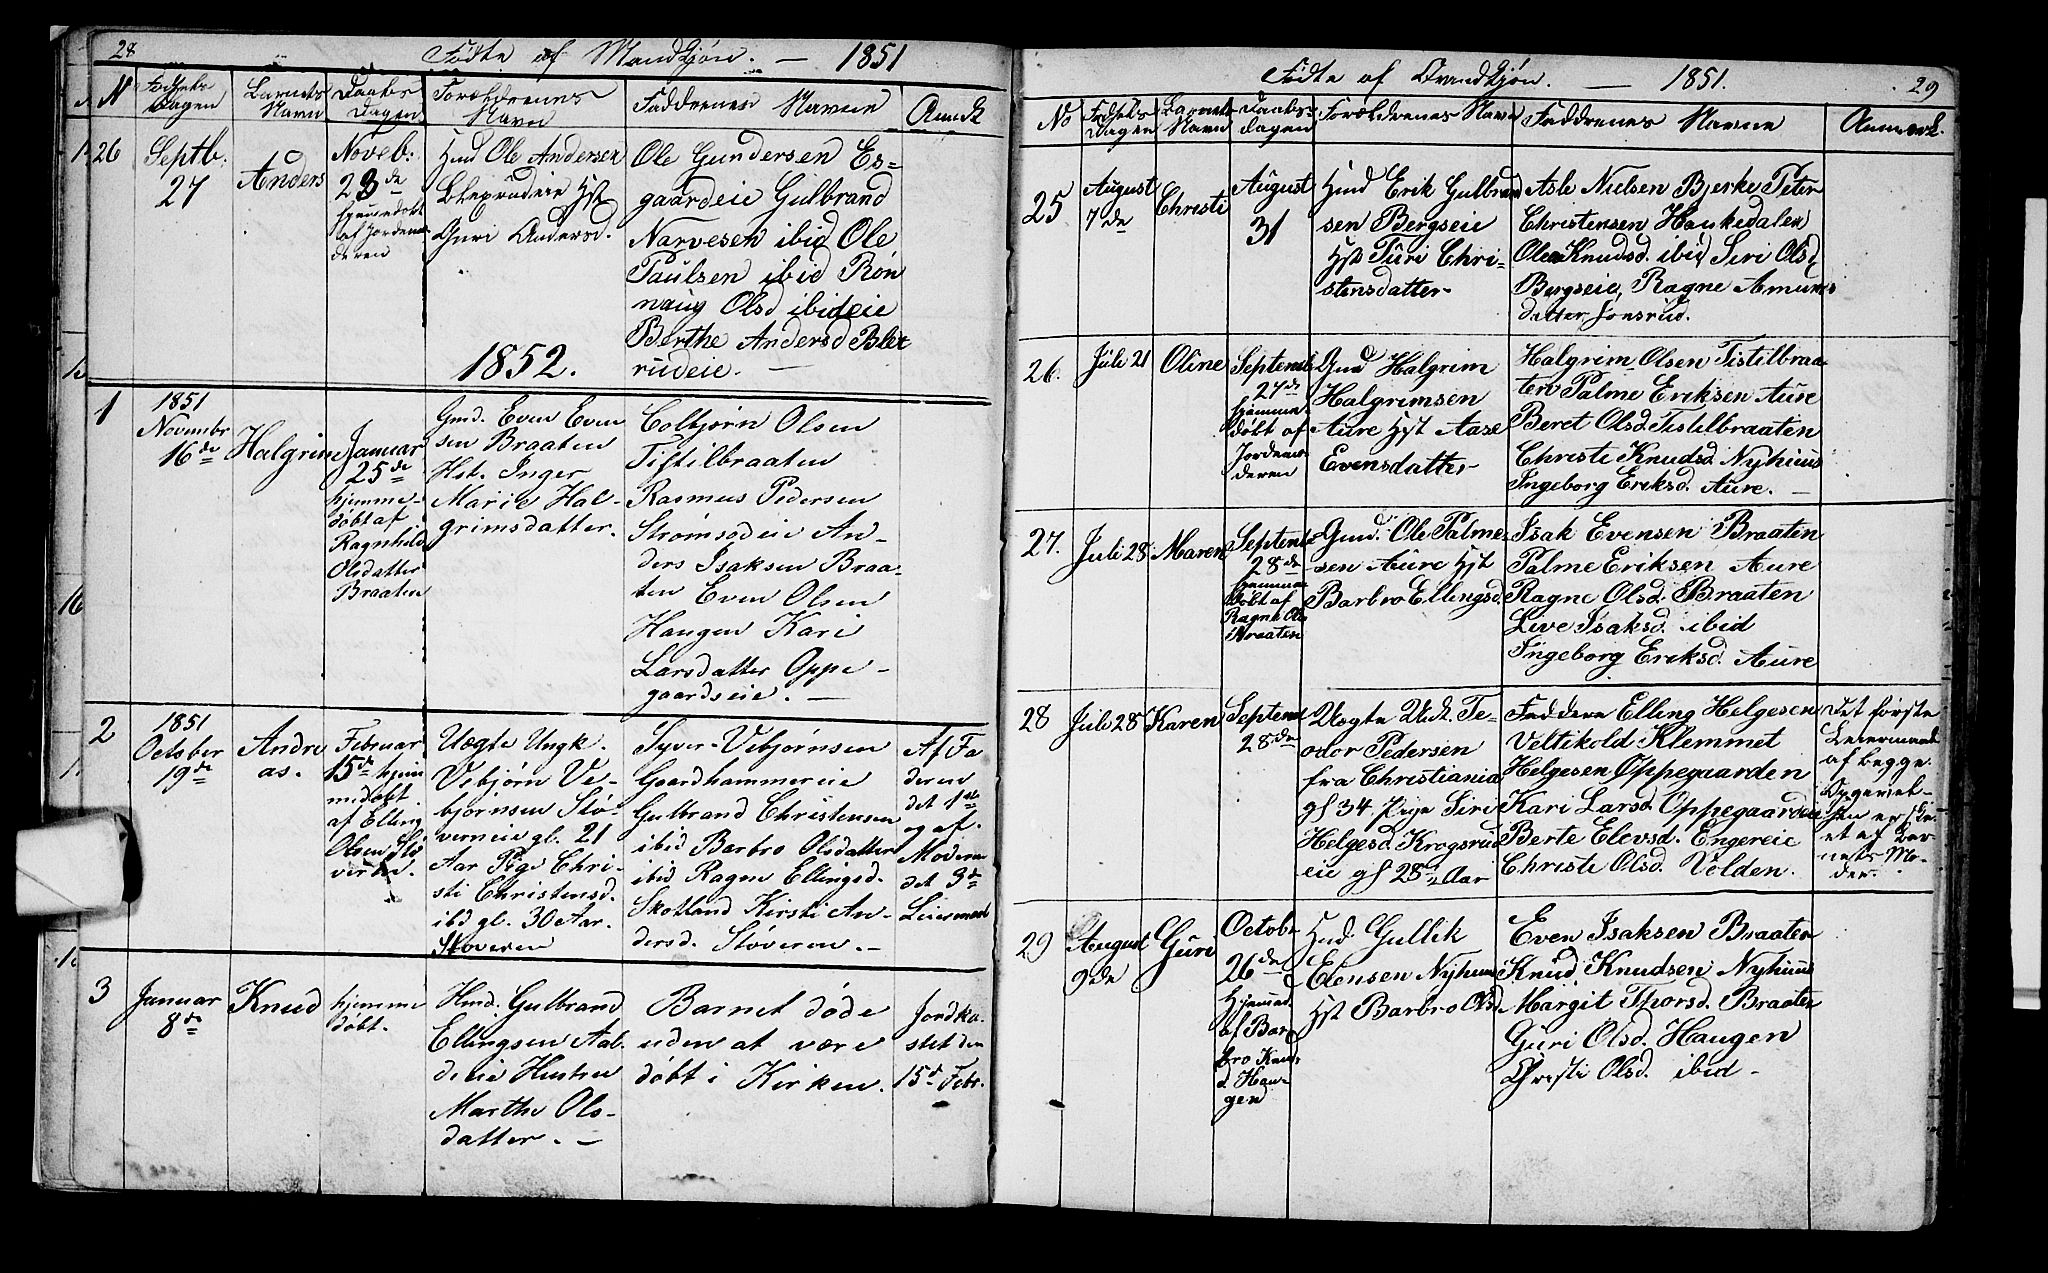 28
Födte af Mandkjön. — 1851
N
Födsels Dagen
Barnets Navn
Daabs Dagen
Forældrenes Navn
Faddrenes Navne
Anmk
26
Septb.
27
Anders
Noveb:
23de
hjemmedöbt
af Jordemo
deren
Hmd Ole Andersen
Blexrudeie Hst
Guri Andersd.
Ole Gundersen Es-
gaardeie Gulbrand
Narvesen ibid Ole
Paulsen ibid Rön
naug Olsd ibideie
Berthe Andersd Blex
rudeie. —
1852.
1
1851
Novembr
16de
Halgrim
Januar
25de
hjemme-
döbt af
Ragnhild
Olsdatter
Braaten
Gmd. Even Even
sen Braaten
Hst. Inger
Marie Hal-
grimsdatter.
Colbjørn Olsen
Tistilbraaten
Rasmus Pedersen
Strømsödeie An-
ders Isaksen Braa-
ten Even Olsen
Haugen Kari
Larsdatter Oppe-
gaardseie. —
2
1851
October
19de
Andre
as.
Februar
15de hjem
medöbt
af Elling
Olsen Stö
veren.
Uægte Ungk.
Vebjörn Ve-
björnsen Stö-
verneie gl. 21
Aar Pige Chri-
sti Christensd.
ibd gl. 30 Aar.
Stöveren
Syver Vebjørnsen
Gaardhammereie
Gulbrand Christensen
ibid Barbro Olsdatter
ibid Ragne Ellingsd.
Skotland Kirsti An-
dersd. Stöveren. —
Af Fa
deren
det 1ste
og af
Moderen
det 3de
Leiermaal
3
Januar
8de
Knud
hjemme
döbt.
Hmd. Gulbrand
Ellingsen Aal-
deie Hustru
Marthe Ols-
datter. —
Barnet döde
uden at være
döbt i Kirken.
Jordka-
stet den
15de Febr.
29
Födte af Qvindkjön. — 1851.
No
Födsels Dagen
Barnets Navn
Daabs-
dagen
Forældrenes Navn
Faddrenes Navne
Anmærk.
25
August
7de
Christi
August
31
Hmd Erik Gulbrand
sen Bergseie
Hst Turi Chri-
stensdatter-
Asle Nielsen Bjerke Peter
Christensen Haukedalen
Olea Knudsd. ibid Siri Olsd
Bergseie, Ragne Amunds
datter Jonsrud.
26.
Juli 21
Oline
Septemb
27de
hjemme-
döbt af
Jordemo-
deren
Gmd Halgrim
Halgrimsen
Aure Hst Aase
Evensdatter-
Halgrim Olsen Tistilbraa
ten Palme Eriksen Aure
Beret Olsd. Tistilbraaten
Christi Knudsd Nyhuus
Ingeborg Eriksd. Aure. —
27.
Juli 28
Maren
Septemb
28de
hjemme
döbt af
Ragnh Ols
Braaten
Gmd. Ole Palme-
sen Aure Hst
Barbro Ellingsd.
Isak Evensen Braaten
Palme Eriksen Aure
Ragne Olsd. Braaten
Live Isaksd. ibid
Ingeborg Eriksd. Aure
28
Juli 28
Karen
Septemb
28de
Uægte Udk. Te-
odor Pedersen
fra Christiania
gl 34 Pige Siri
Helgesd. Krogsrud
eie gl 28 Aar
Faddere Elling Helgesen
Veltikold Klemmet
Helgesen Oppegaarden
Kari Larsd. Oppegaarden
Berte Elevsd. Engereie
Christi Olsd. Volden.
Det förste
Leiermaal
af begge.
Opgivel-
sen er ske-
et af Bar-
nets Mo-
der.
29
August
9de
Guri
Octobr
26de
Hjemmed.
af Bar-
bro Knuds
d. Hau-
gen
Hmd. Gullik
Elensen Nyhuus
Hst Barbro Olsd
Even Isaksen Braaten
Knud Knudsen Nyhuus
Margit Thorsd. Braaten
Guri Olsd. Haugen
Christi Olsd. ibid -